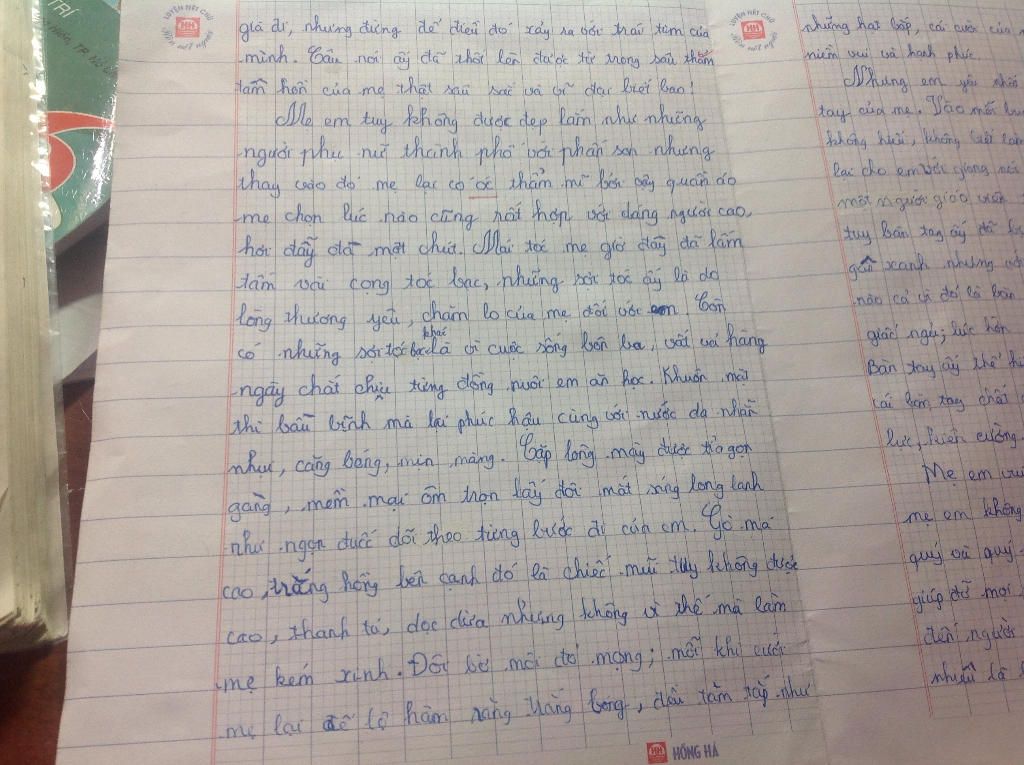 già đi, nhưng đừng để điều đó xảy ra với trái tim của
mình. Câu nói ấy đã thốt lên được từ trong sâu thẳm
tâm hồn của mẹ thật sâu sắc và vĩ đại biết bao!
Mẹ em tuy không được đẹp lắm như những
người phụ nữ thành phố với phấn son nhưng
thay vào đó mẹ lại có óc thẩm mĩ bởi vậy quần áo
mẹ chọn lúc nào cũng rất hợp với dáng người cao,
hơi đẫy đà một chút. Mái tóc mẹ giờ đây đã lấm
tấm vài cọng tóc bạc, những sợi tóc ấy là do
lòng thương yêu, chăm lo của mẹ đối với em. Còn
có những sợi tóc bạc khác là vì cuộc sống bôn ba, vất vả hàng
ngày chắt chiu từng đồng nuôi em ăn học. Khuôn mặt
thì bầu bĩnh mà lại phúc hậu cùng với nước da nhẵn
như, căng bóng, mịn màng. Cặp lông mày được tỉa gọn
gàng, mềm mại ôm trọn lấy đôi mắt sáng long lanh
như ngọn đuốc dõi theo từng bước đi của em. Gò má
cao, trắng hồng bên cạnh đó là chiếc mũi tuy không được
cao, thanh tú, dọc dừa nhưng không vì thế mà làm
mẹ kém xinh. Đôi bờ môi đỏ mọng; mỗi khi cười
mẹ lại để lộ hàm răng trắng bóng, đều tăm tắp như
HH HỒNG HÀ
những hạt bắp, cái cười của
niềm vui và hạnh phúc.
Nhưng em yêu nhất
tay của mẹ. Vào mỗi
không hiểu, không
lại cho em với giọng nói
một người giáo viên
tuy bàn tay ấy đã
gân xanh nhưng với
nào cả vì đó là bàn
giấc ngủ; lúc hôn
Bàn tay ấy thể
cái bàn tay chất
lực, kiên cường
Mẹ em
mẹ em không
quý và quý
giúp đỡ mọi
đến người
nhiều là